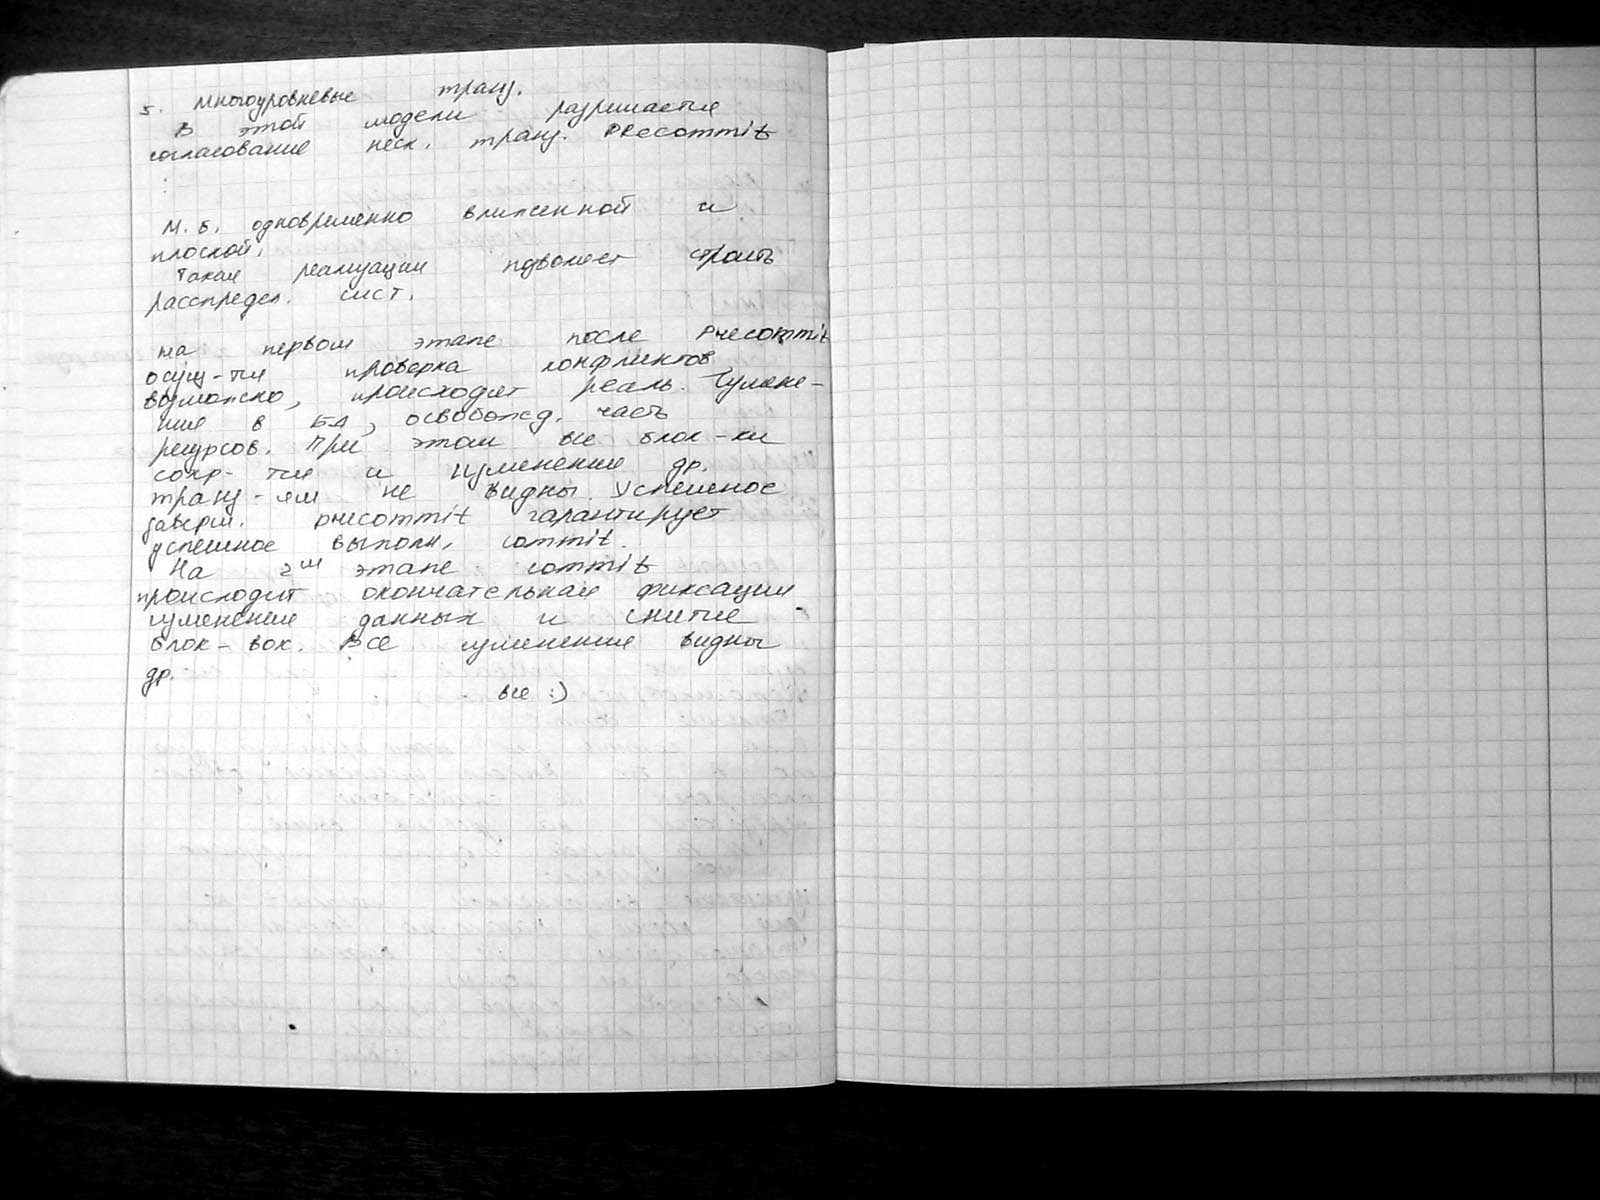 5. Многоуровневые транз.
В этой модели разрешается
согласование неск. транз. PRecommit
:
М. б. одновременно вложенной и
плоской.
Такая реализация позволяет строить
расспредел. сист.
На первом этапе после Precommit
осущ-тся проверка конфликтов
возможно, происходят реальн. измене-
ния в БД, освобожд. часть
ресурсов. При этом все блок-ки
сохр-тся и изменения др.
транз-ям не видны. Успешное
заверш. precommit гарантирует
успешное выполн. commit.
На 2ом этапе : commit
происходит окончательная фиксация
изменение данных и снятие
блок-вок. Все изменения видны
др.
все :)